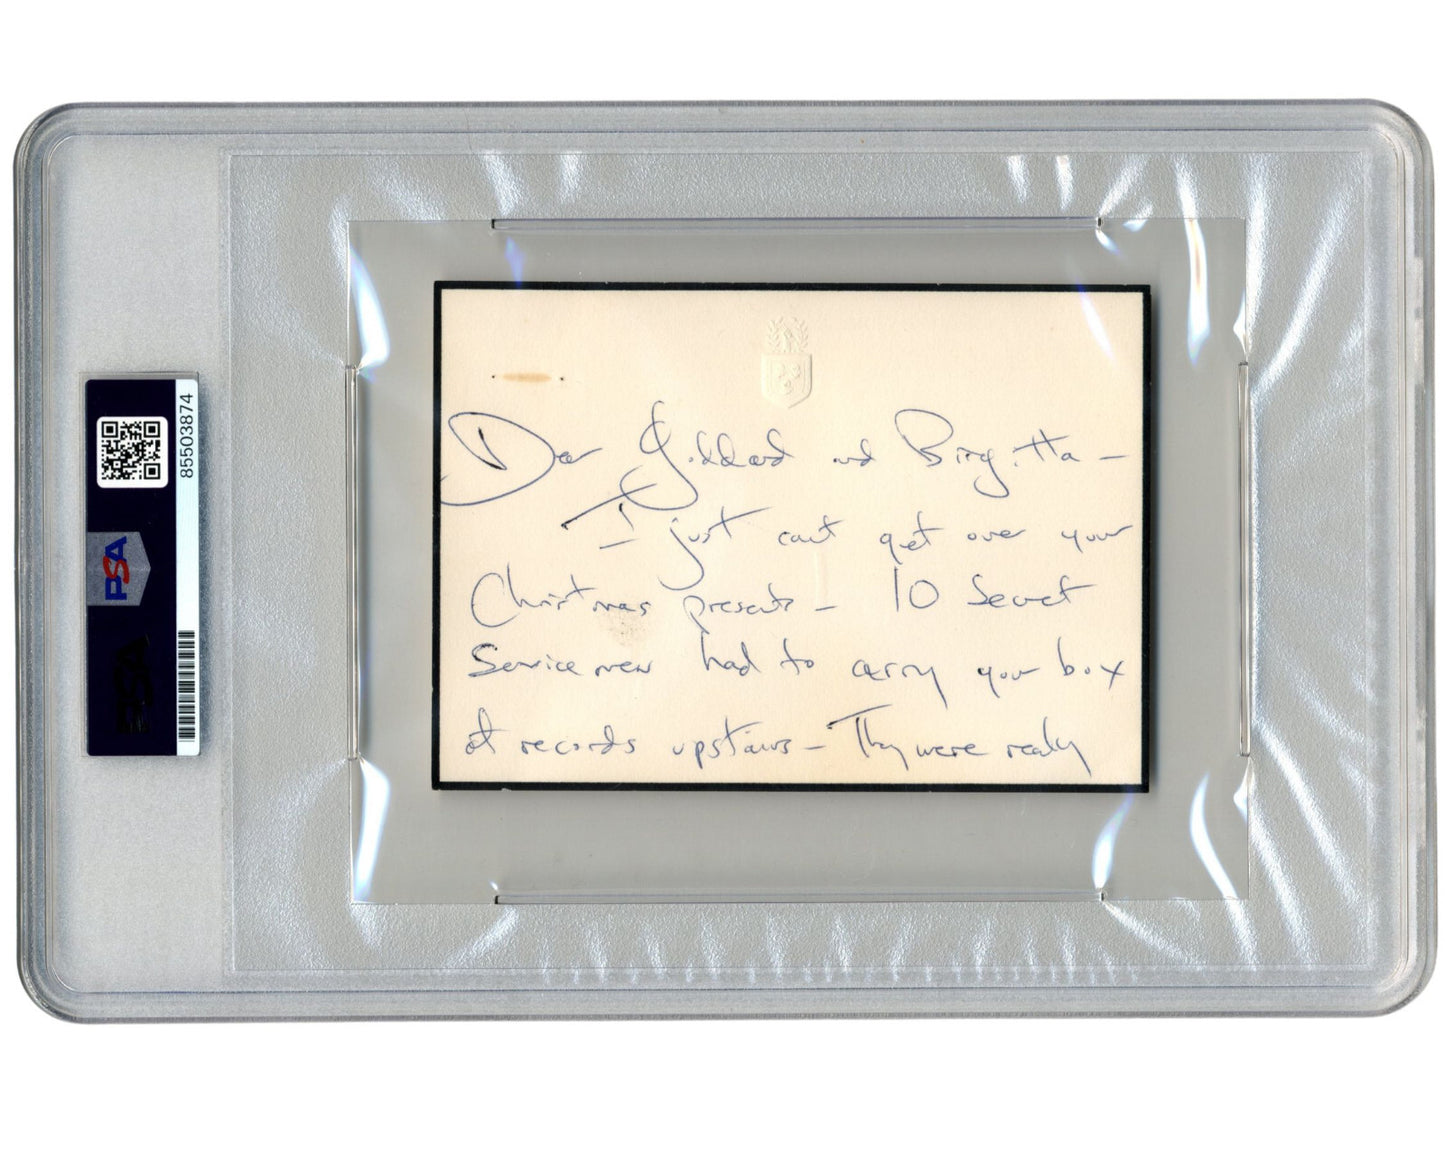 Dear Goddard and Birgitta —
I just cant get over your
Christmas presents — 10 Secret
Service men had to carry your box
of records upstairs — They were really
PSA
85503874